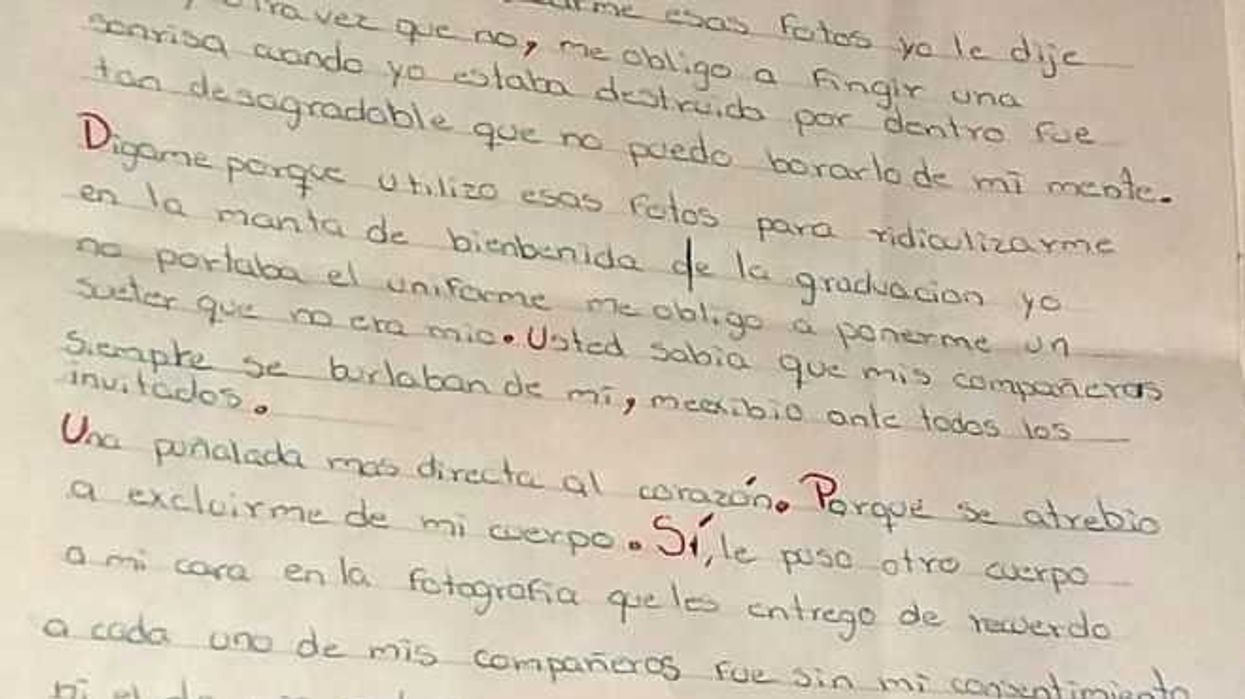 otra vez que no, me obligo a fingir una
esas fotos yo le dije
sonrisa cuando yo estaba destruida por dentro fue
tan desagradable que no puedo borarlo de mi mente.
Digame porque utilizo esas fotos para ridiculizarme
en la manta de bienbenida de la graduacion yo
no portaba el uniforme me obligo a ponerme un
sueter que no era mio. Usted sabia que mis compañeros
siempre se burlaban de mi, me exibio ante todos los
invitados.
Una puñalada mas directa al corazón. Porqué se atrebio
a excluirme de mi cuerpo. Sí, le puso otro cuerpo
a mi cara en la fotografia que les entrego de recuerdo
a cada uno de mis compañeros fue sin mi consentimiento
ni el